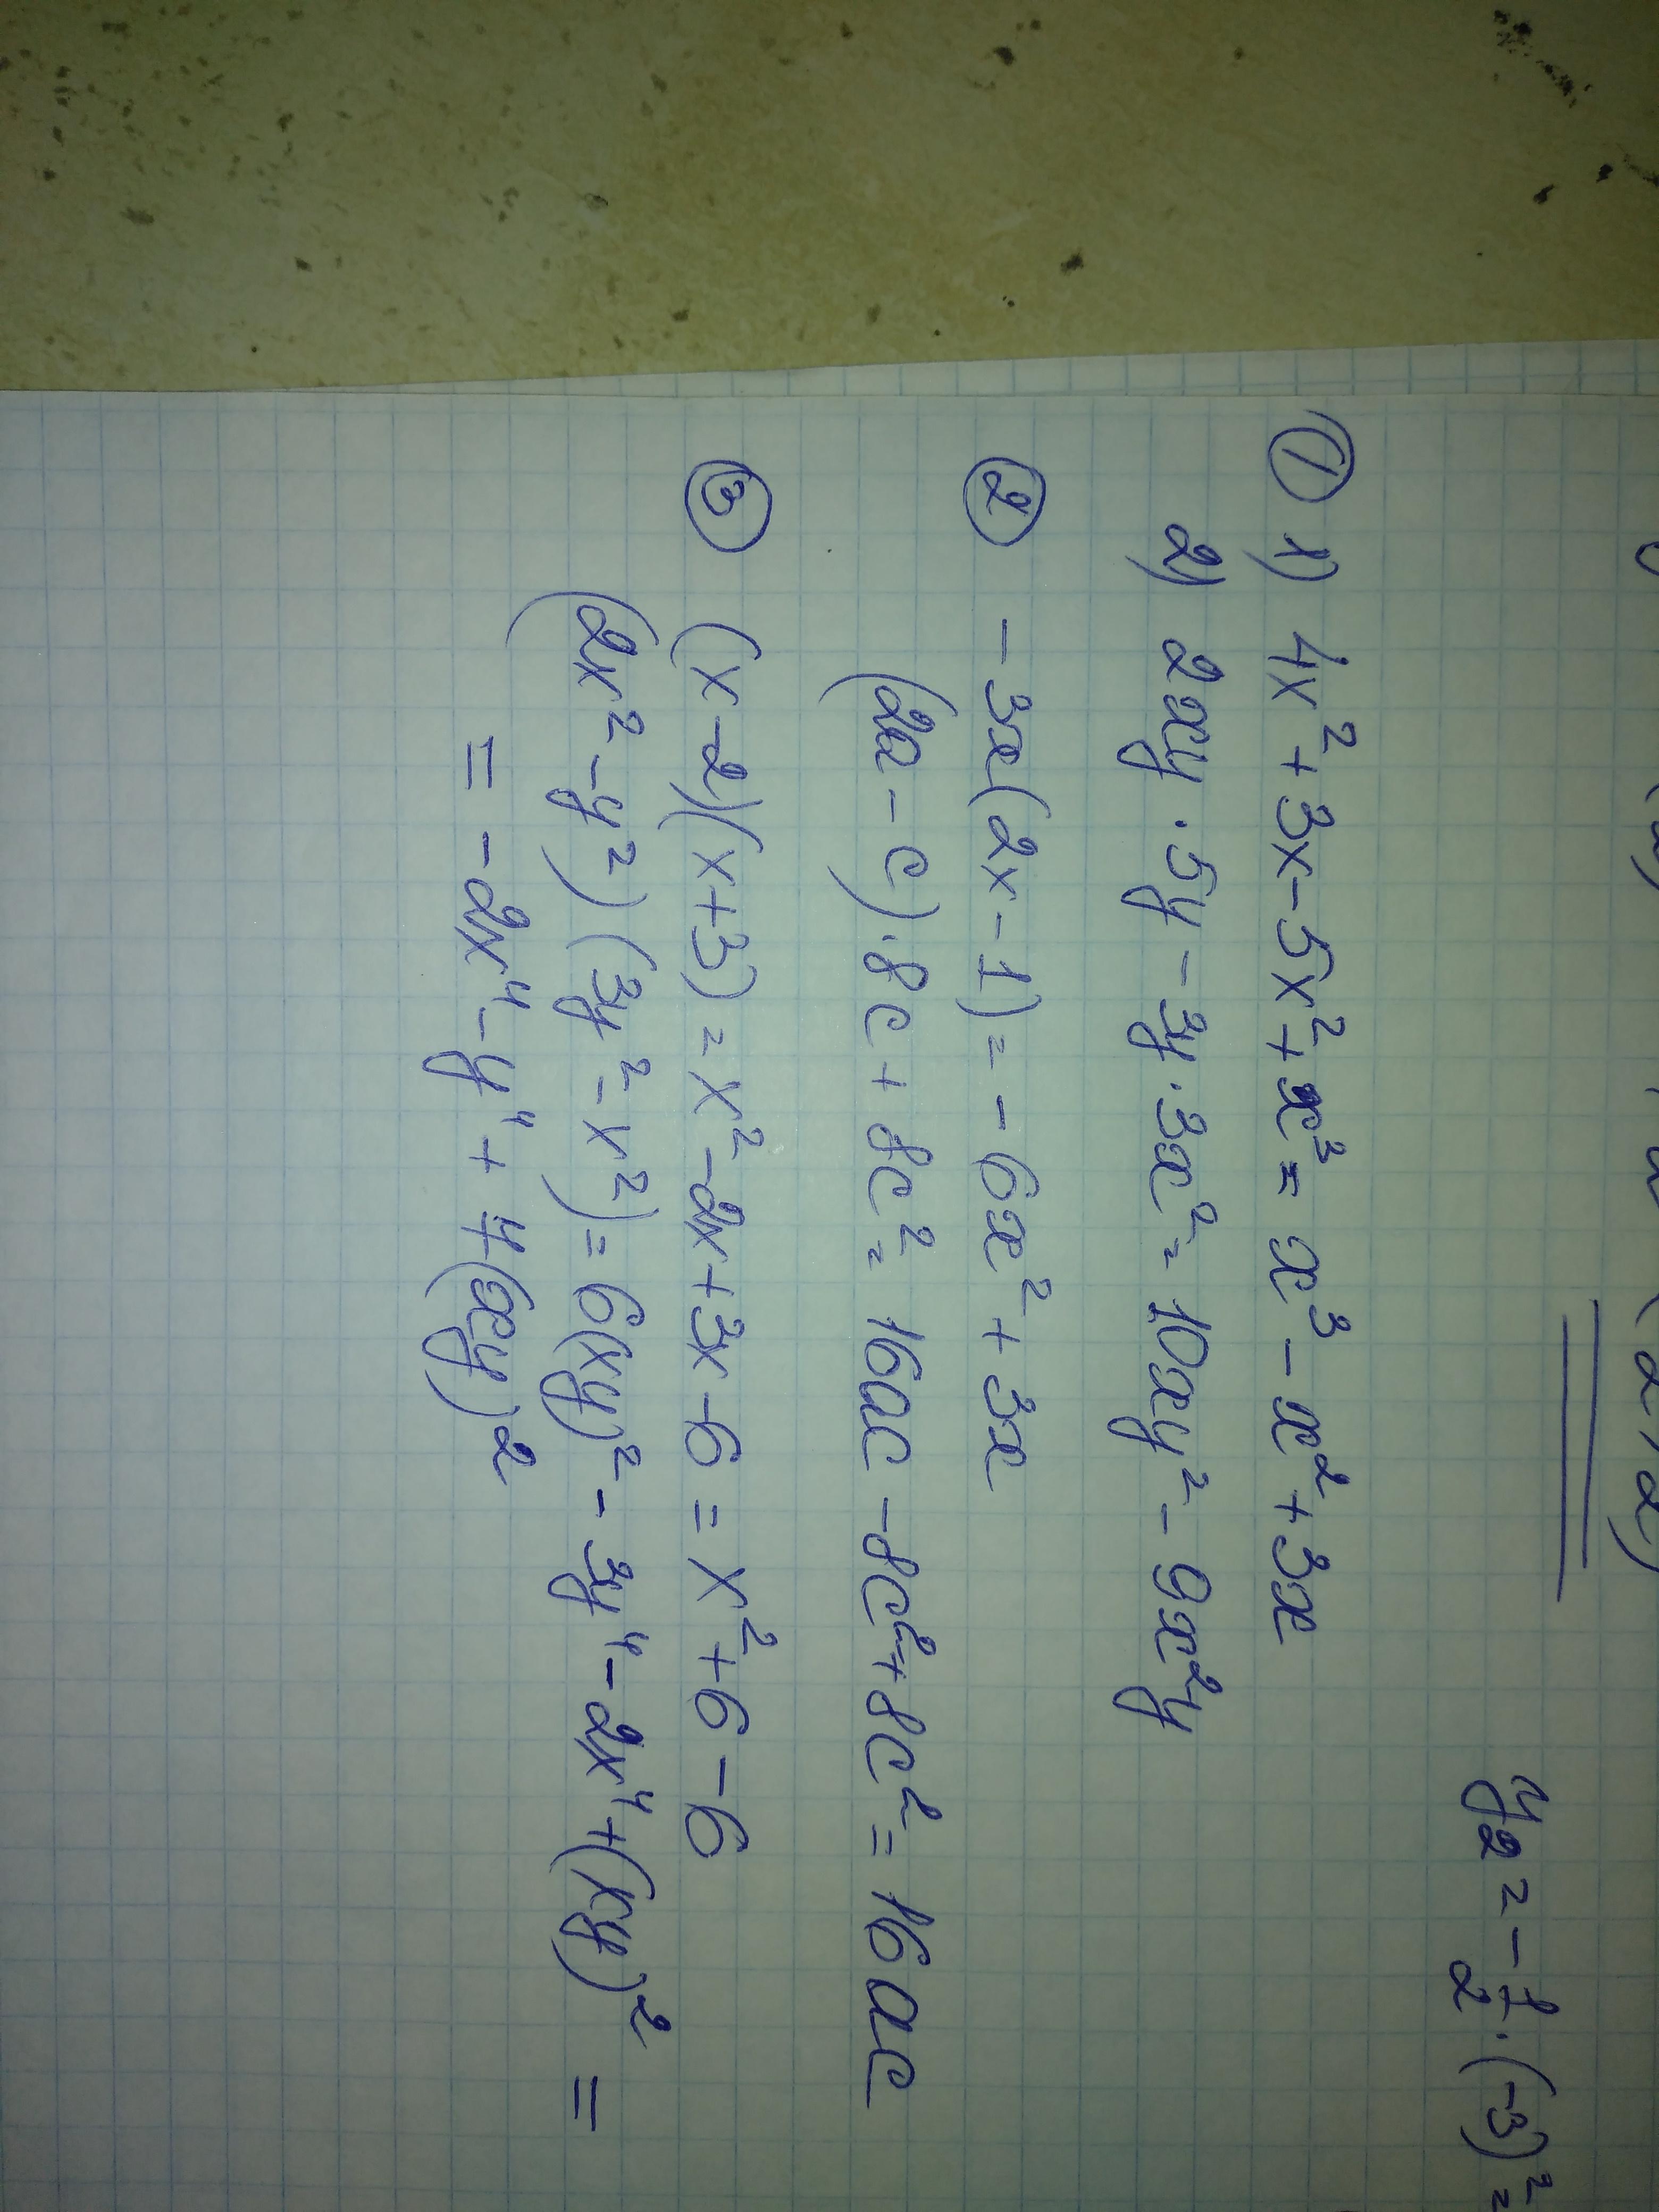 y₂ = -1/2 · (-3)² =
① 1) 4x² + 3x - 5x² + x³ = x³ - x² + 3x
2) 2xy · 5y - 3y · 3x² = 10xy² - 9x²y
② - 3x(2x - 1) = - 6x² + 3x
(2a - c) · 8c + 8c² = 16ac - 8c² + 8c² = 16ac
③ (x - 2)(x + 3) = x² - 2x + 3x - 6 = x² + 6 - 6
(2x² - y²)(3y² - x²) = 6(xy)² - 3y⁴ - 2x⁴ + (xy)² =
= - 2x⁴ - y⁴ + 4(xy)²